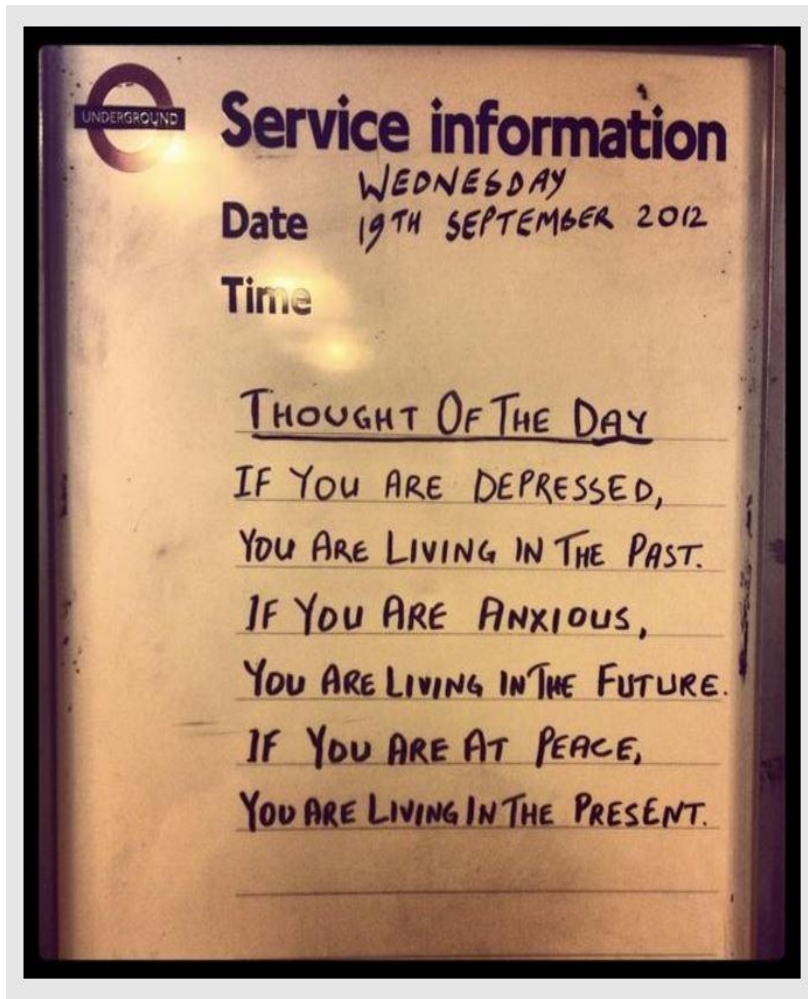 UNDERGROUND
Service information
WEDNESDAY
Date 19TH SEPTEMBER 2012
Time
THOUGHT OF THE DAY
IF YOU ARE DEPRESSED,
YOU ARE LIVING IN THE PAST.
IF YOU ARE ANXIOUS,
YOU ARE LIVING IN THE FUTURE.
IF YOU ARE AT PEACE,
YOU ARE LIVING IN THE PRESENT.